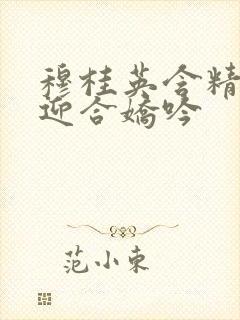 穆桂英含精
迎合娇吟
范小东